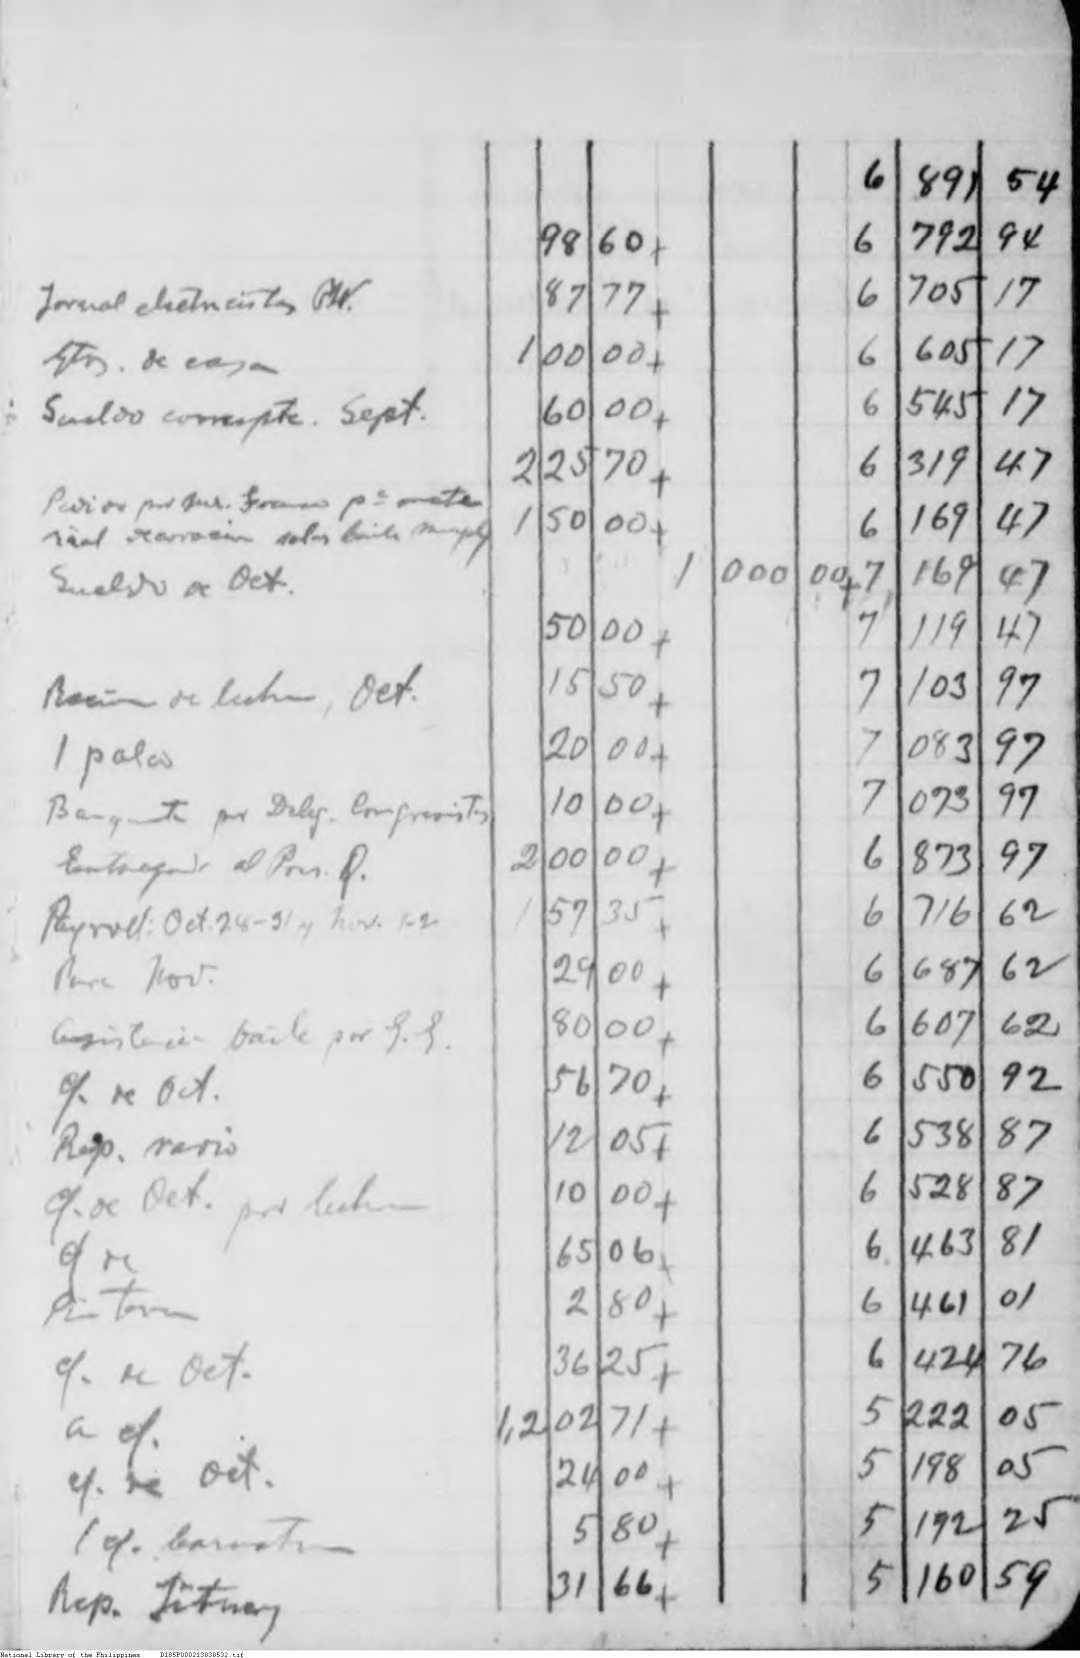 6 891 54
98 60+ 6 792 94
Jornal electricistas PW. 87 77+ 6 705 17
Gtos. de casa 1 00 00+ 6 605 17
Sueldo correspte. Sept. 60 00+ 6 545 17
2 25 70+ 6 319 47
por p^a mate
rial 1 50 00+ 6 169 47
Sueldo de Oct. 1 000 00+ 7 169 47
50 00+ 7 119 47
Ración de leche, Oct. 15 50+ 7 103 97
1 palco 20 00+ 7 083 97
Banquete por Deleg. Congresistas 10 00+ 7 073 97
al P. 2 00 00+ 6 873 97
Payroll: Oct. 28-31 y Nov. 1-2 1 57 35+ 6 716 62
Para Nov. 29 00+ 6 687 62
Asistencia baile por 80 00+ 6 607 62
cf. de Oct. 56 70+ 6 550 92
Rep. vario 12 05+ 6 538 87
cf. de Oct. por leche 10 00+ 6 528 87
cf de 65 06+ 6 463 81
Pintura 2 80+ 6 461 01
cf. de Oct. 36 25+ 6 424 76
a cf. 1,2 02 71+ 5 222 05
cf. de Oct. 24 00+ 5 198 05
1 cf. 5 80+ 5 192 25
Rep. 31 66+ 5 160 59
National Library of the Philippines D185P000213038532.tif